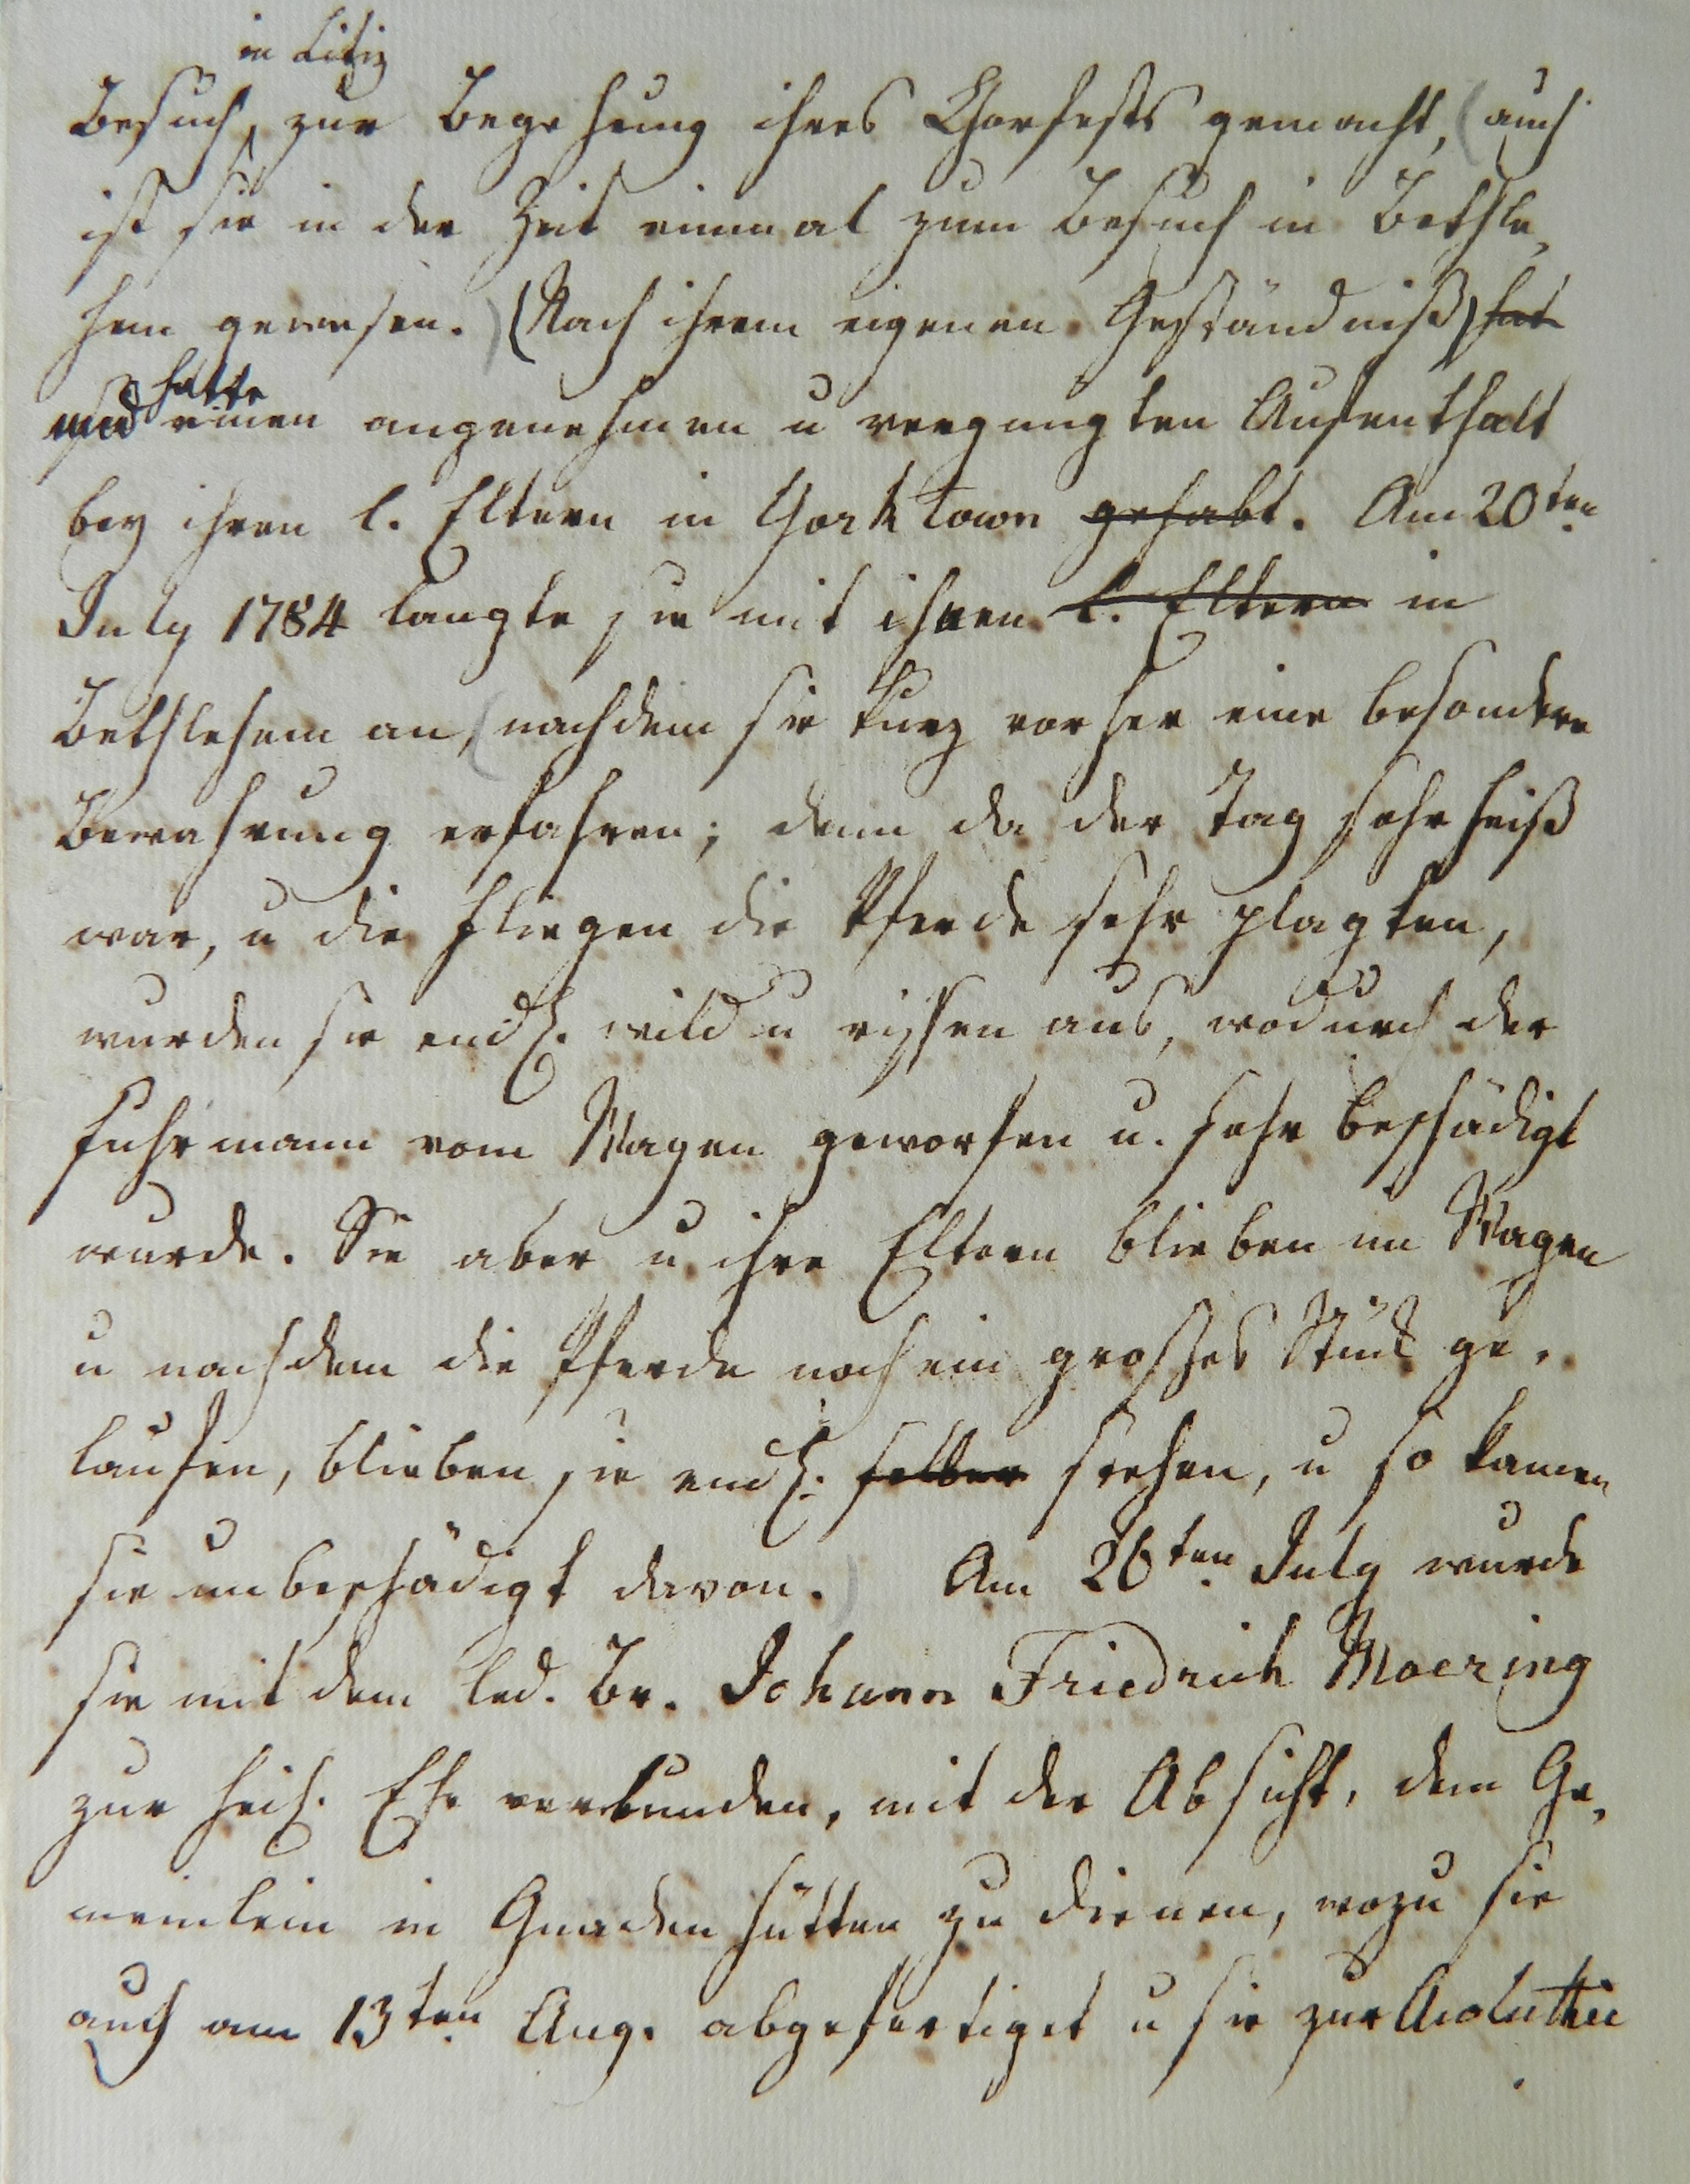 in Litiz
Besuch, zur Begehung ihres Chorfests gemacht, (auch
ist sie in der Zeit einmal zum Besuch in Bethle,
hem gewesen.) (Nach ihrem eigenen Geständniß) hat
hatte
sie einen angenehmen u vergnügten Aufenthalt
bey ihren l. Eltern in York Town gehabt. Am 20ten
July 1784 langte sie mit ihnen l. Eltern in
Bethlehem an, (nachdem sie kurz vorher eine besondere
Bewahrung erfahren; denn da der Tag sehr heiß
war, u die Fliegen die Pferde sehr plagten,
wurden sie endl. wild u rissen aus, wodurch der
Fuhrmann vom Wagen geworfen u. sehr beschädigt
wurde. Sie aber u ihre Eltern blieben im Wagen
u nachdem die Pferde noch ein großes Stük ge,
laufen, blieben sie endl. selber stehen, u so kamen
sie unbeschädigt davon.) Am 26ten July wurde
sie mit dem led. Br. Johann Friedrich Moering
zur heil. Ehe verbunden, mit der Absicht, dem Ge,
meinlein in Gnadenhütten zu dienen, wozu sie
auch am 13ten Aug. abgefertiget u sie zur Acoluthie